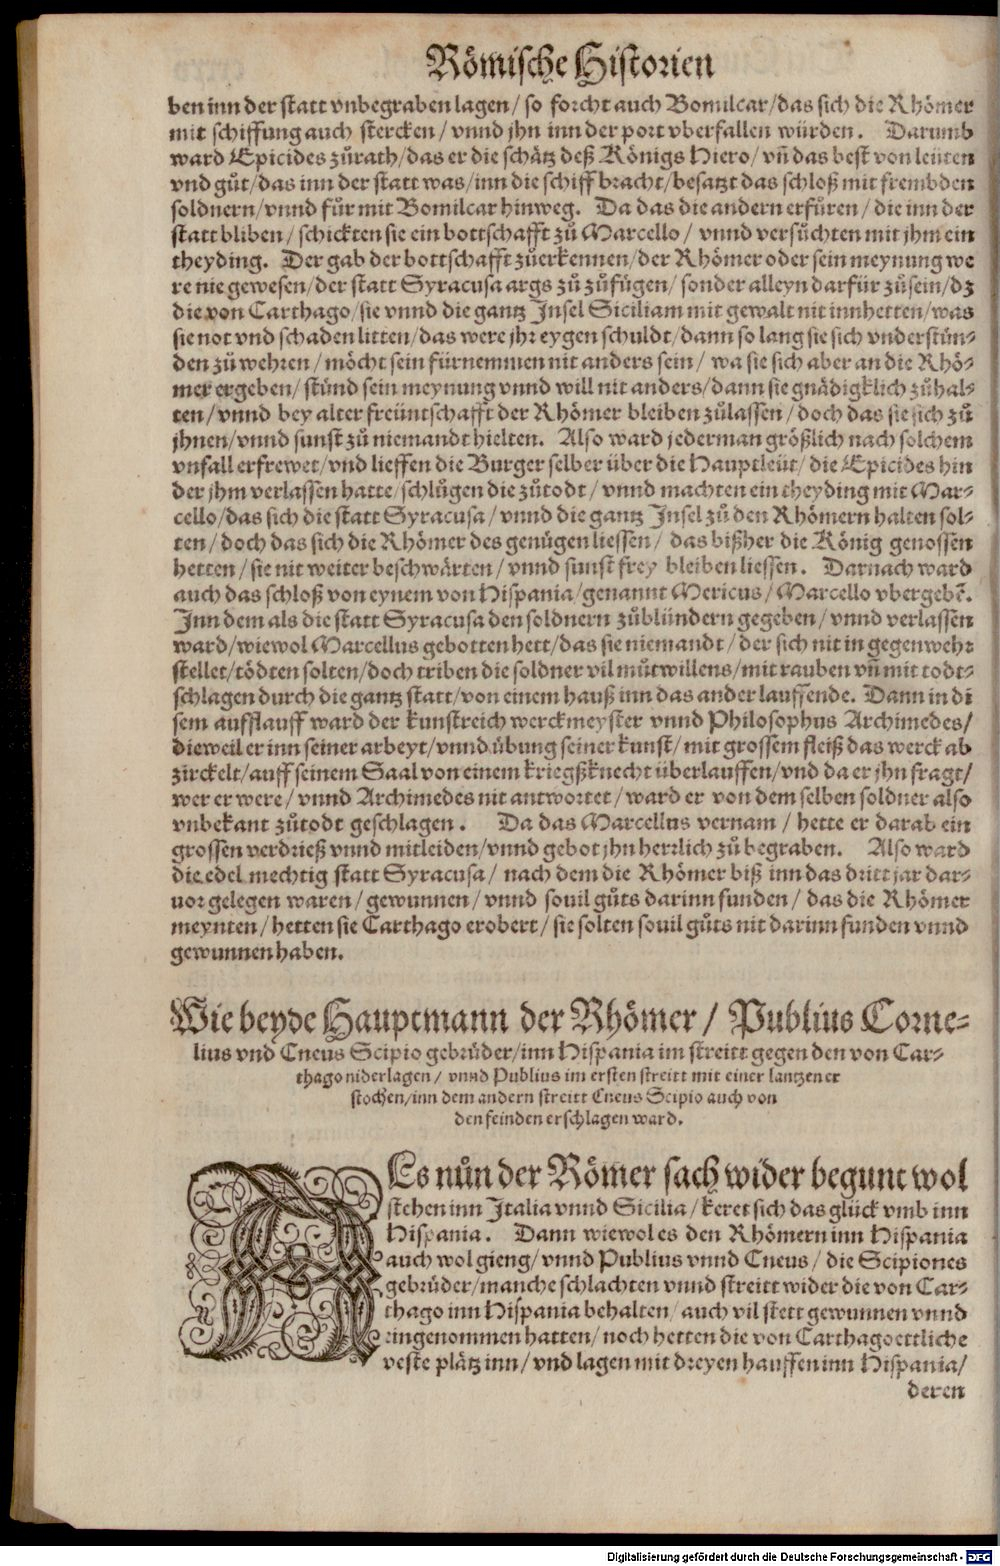 Römische Historien
ben inn der statt vnbegraben lagen/ so forcht auch Bomilcar/das sich die Rhömer
mit schiffung auch stercken/ vnnd jhn inn der port vberfallen würden. Darumb
ward Epicides zůrath/das er die schätz deß Königs Hiero/vñ das best von leüten
vnd gůt/das inn der statt was/inn die schiff bracht/besatzt das schloß mit frembden
soldnern/vnnd fůr mit Bomilcar hinweg. Da das die andern erfůren/ die inn der
statt bliben/ schickten sie ein bottschafft zů Marcello/ vnnd versůchten mit jhm ein
theyding. Der gab der bottschafft zůerkennen/der Rhömer oder sein meynung we
re nie gewesen/der statt Syracusa args zů zůfügen/ sonder alleyn darfür zůsein/dz
die von Carthago/sie vnnd die gantz Insel Siciliam mit gewalt nit innhetten/was
sie not vnd schaden litten/das were jhr eygen schuldt/dann so lang sie sich vnderstün-
den zů wehren/ möcht sein fürnemmen nit anders sein/ wa sie sich aber an die Rhö-
mer ergeben/ stůnd sein meynung vnnd will nit anders/dann sie gnädigklich zůhal-
ten/ vnnd bey alter freüntschafft der Rhömer bleiben zůlassen/ doch das sie sich zů
jhnen/vnnd sunst zů niemandt hielten. Also ward jederman größlich nach solchem
vnfall erfrewet/vnd lieffen die Burger selber über die Hauptleüt/ die Epicides hin
der jhm verlassen hatte/schlůgen die zůtodt/ vnnd machten ein theyding mit Mar-
cello/das sich die statt Syracusa/ vnnd die gantz Insel zů den Rhömern halten sol-
ten/ doch das sich die Rhömer des genügen liessen/ das bißher die König genossen
hetten/ sie nit weiter beschwärten/ vnnd sunst frey bleiben liessen. Darnach ward
auch das schloß von eynem von Hispania/genannt Mericus/ Marcello vbergebē.
Inn dem als die statt Syracusa den soldnern zůblündern gegeben/ vnnd verlassen
ward/wiewol Marcellus gebotten hett/das sie niemandt/ der sich nit in gegenwehr
stellet/tödten solten/doch triben die soldner vil můtwillens/mit rauben vñ mit todt-
schlagen durch die gantz statt/von einem hauß inn das ander lauffende. Dann in di
sem aufflauff ward der kunstreich werckmeyster vnnd Philosophus Archimedes/
dieweil er inn seiner arbeyt/vnnd übung seiner kunst/ mit grossem fleiß das werck ab
zirckelt/auff seinem Saal von einem kriegßknecht überlauffen/vnd da er jhn fragt/
wer er were/ vnnd Archimedes nit antwortet/ ward er von dem selben soldner also
vnbekant zůtodt geschlagen. Da das Marcellus vernam/ hette er darab ein
grossen verdrieß vnnd mitleiden/vnnd gebot jhn herrlich zů begraben. Also ward
die edel mechtig statt Syracusa/ nach dem die Rhömer biß inn das dritt jar dar-
uor gelegen waren/ gewunnen/ vnnd souil gůts darinn funden/ das die Rhömer
meynten/ hetten sie Carthago erobert/ sie solten souil gůts nit darinn funden vnnd
gewunnen haben.
Wie beyde Hauptmann der Rhömer/ Publius Corne-
lius vnd Cneus Scipio gebrüder/inn Hispania im streitt gegen den von Car-
thago niderlagen/ vnnd Publius im ersten streitt mit einer lantzen er
stochen/inn dem andern streitt Cneus Scipio auch von
den feinden erschlagen ward.
ALs nůn der Römer sach wider begunt wol
stehen inn Italia vnnd Sicilia/ keret sich das glück vmb inn
Hispania. Dann wiewol es den Rhömern inn Hispania
auch wol gieng/ vnnd Publius vnnd Cneus/ die Scipiones
gebrüder/manche schlachten vnnd streitt wider die von Car-
thago inn Hispania behalten/ auch vil stett gewunnen vnnd
eingenommen hatten/ noch hetten die von Carthago ettliche
veste plätz inn/ vnd lagen mit dreyen hauffen inn Hispania/
deren
Digitalisierung gefördert durch die Deutsche Forschungsgemeinschaft - DFG